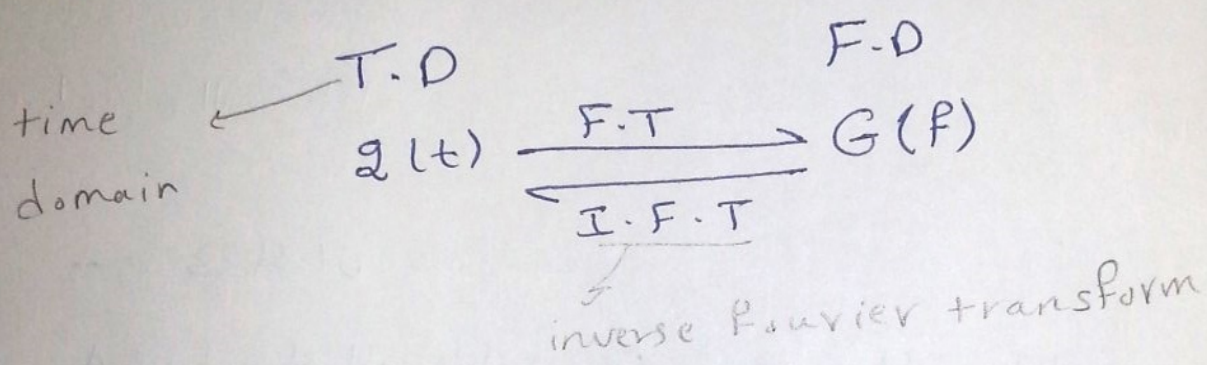 T.D F.D
time
domain
g(t) F.T G(f)
I.F.T
inverse fourier transform